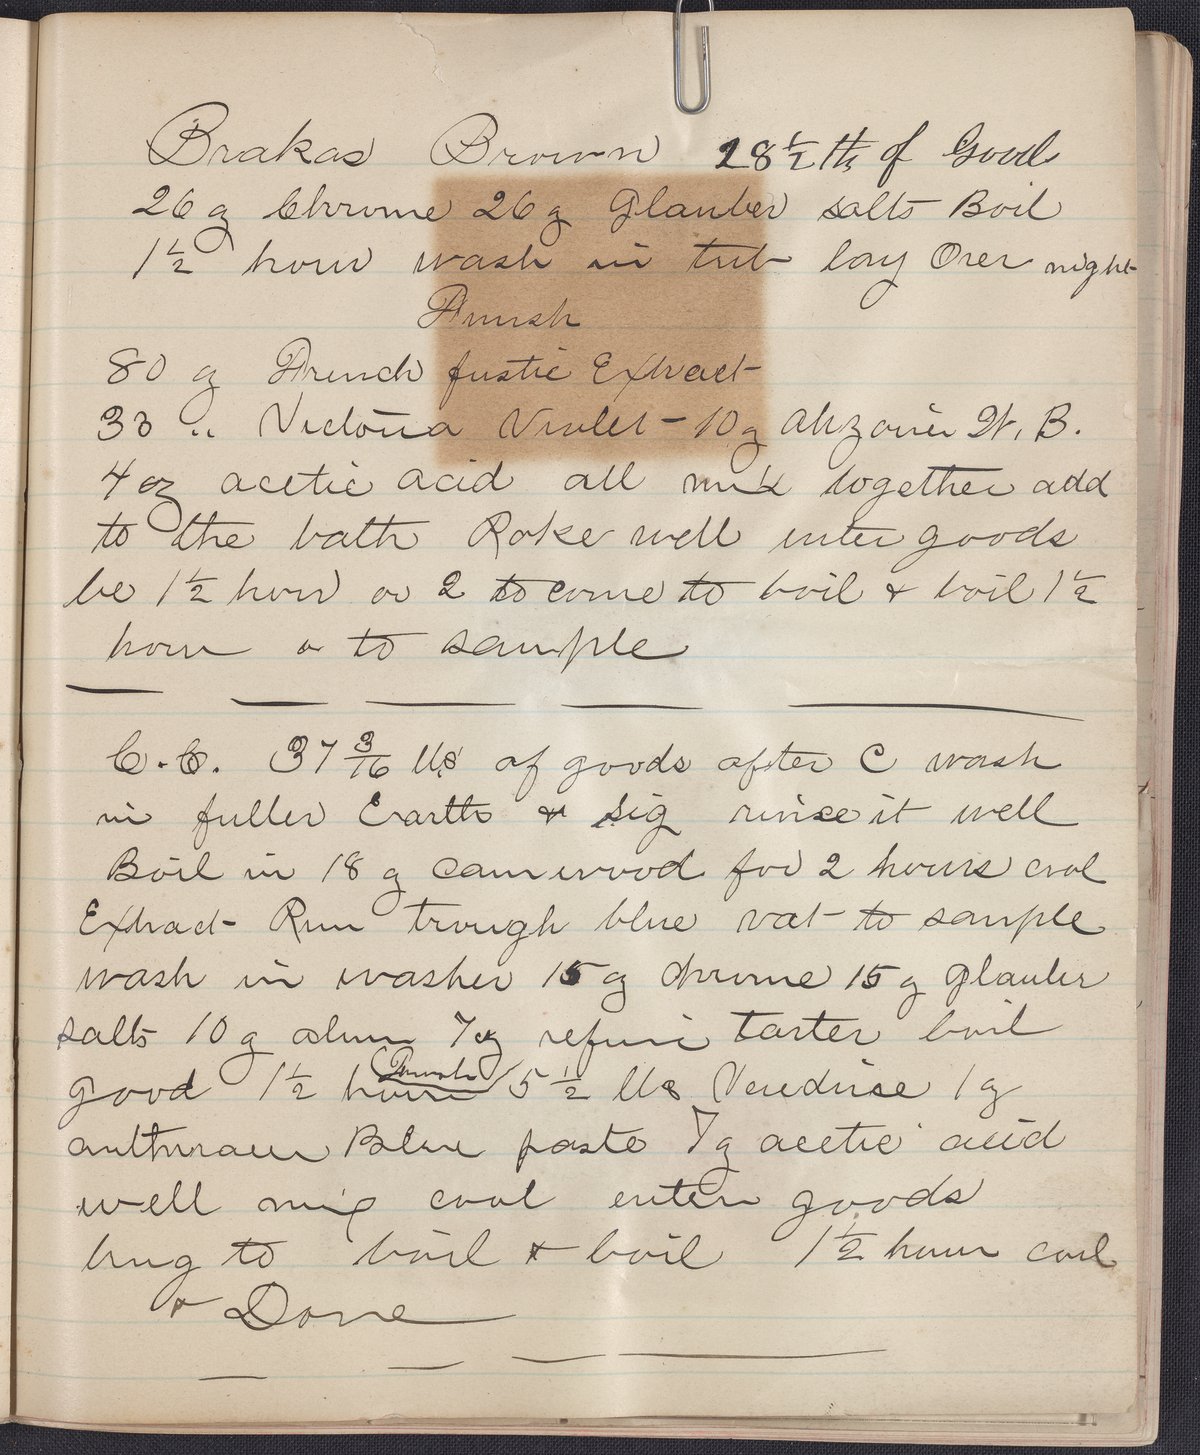 Brakas Brown 28 1/2 lb of Good
26 oz Chrome 26 oz Glauber salts Boil
1 1/2 hour wash in tub lay Over night
Finish
80 oz French fustic Extract
33 " Victoria Violet - 10 oz Alizarin W. B.
4 oz acetic acid all mix together add
to the bath Rake well enter goods
be 1 1/2 hour or 2 to come to boil & boil 1 1/2
hour or to sample
C. C. 37 3/16 lbs of goods after C wash
in fuller Earth & sig rinse it well
Boil in 18 oz camwood for 2 hours cool
Extract Run trough blue vat to sample
wash in washer 15 oz chrome 15 oz Glauber
salts 10 oz alum 7 oz refine tarter boil
good 1 1/2 hour Finish 5 1/2 lbs 1 oz
Blue paste 7 oz acetic acid
well mix cool enter goods
bring to boil & boil 1 1/2 hour cool
& Done